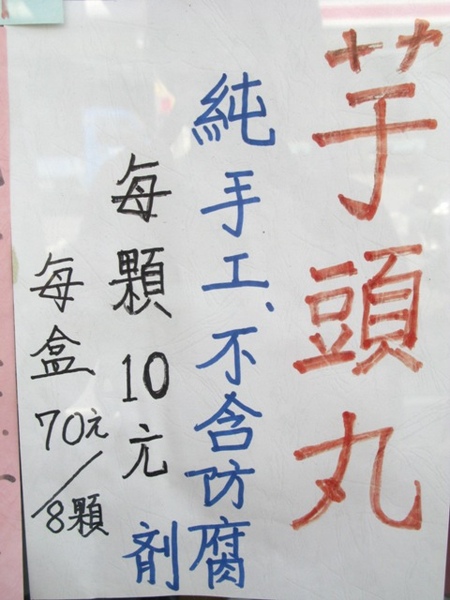 芋頭丸
純手工、不含防腐劑
每顆10元
每盒70元/8顆